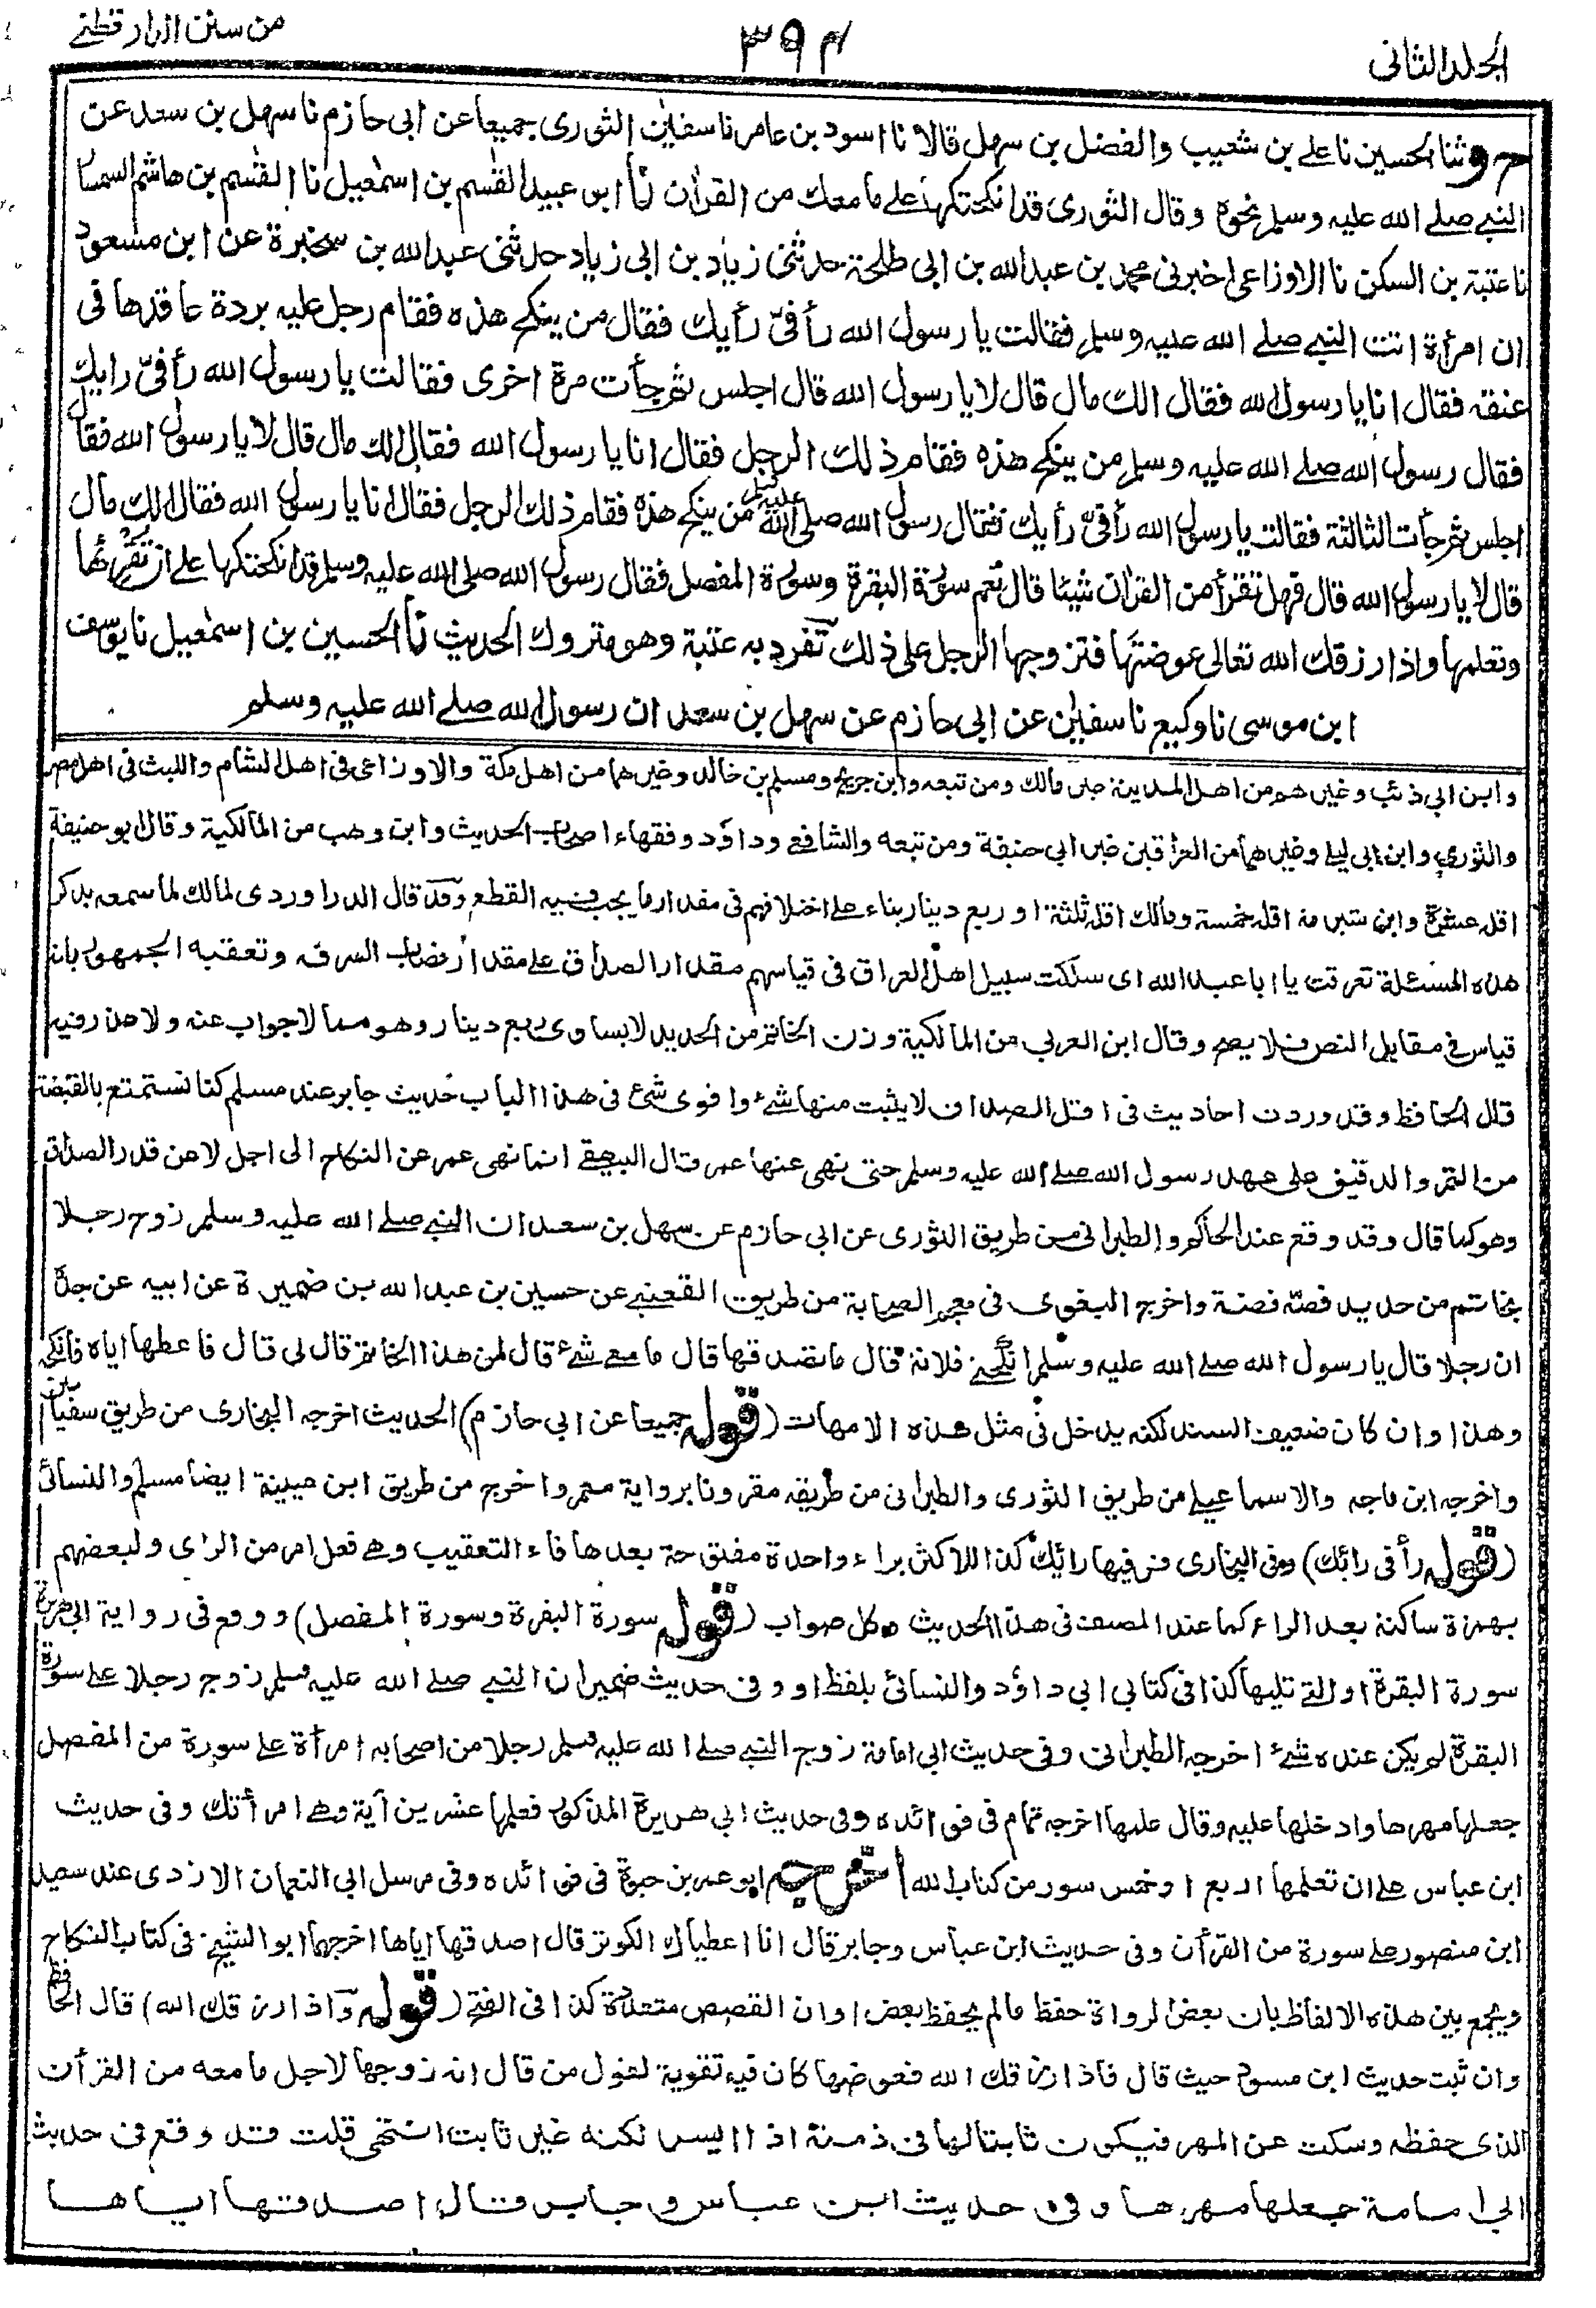 الجلد الثانى
٣٩٤
من سنن الدارقطنے
ح وثنا الحسين نا علے بن شعيب والفضل بن سهل قالا نا اسود بن عامر نا سفين الثورى جميعا عن ابى حازم نا سهل بن سعد عن
النبے صلے الله عليه وسلم نحوه وقال الثورى قد انكحتكها علے ما معك من القرآن نا ابو عبيد القسم بن اسمعيل نا القسم بن هاشم السمسا
نا عتبة بن السكن نا الاوزاعى اخبرنى محمد بن عبد الله بن ابى طلحة حدثنى زياد بن ابى زياد حدثنى عبد الله بن سخبرة عن ابن مسعود
ان امرأة اتت النبے صلے الله عليه وسلم فقالت يا رسول الله رأ فىّ رأيك فقال من ينكح هذه فقام رجل عليه بردة عاقدها فى
عنقه فقال انا يا رسول الله فقال الك مال قال لا يا رسول الله قال اجلس ثم جأت مرة اخرى فقالت يا رسول الله رأ فىّ رايك
فقال رسول الله صلے الله عليه وسلم من ينكح هذه فقام ذلك الرجل فقال انا يا رسول الله فقال الك مال قال لا يا رسول الله فقال
اجلس ثم جأت الثالثة فقالت يا رسول الله رأ فىّ رأيك فقال رسول الله صلى الله عليه وسلم من ينكح هذه فقام ذلك الرجل فقال انا يا رسول الله فقال الك مال
قال لا يا رسول الله قال فهل تقرأ من القرآن شيئا قال نعم سورة البقرة وسورة المفصل فقال رسول الله صلى الله عليه وسلم قد انكحتكها على ان تقرئها
وتعلمها واذا رزقك الله تعالى عوضتها فتزوجها الرجل على ذلك تفرد به عتبة وهو متروك الحديث نا الحسين بن اسمعيل نا يوسف
ابن موسى نا وكيع نا سفين عن ابى حازم عن سهل بن سعد ان رسول الله صلے الله عليه وسلم
وابن ابي ذئب وغيرهم من اهل المدينة حتى مالك ومن تبعه وابن جريج ومسلم بن خالد وغيرهما من اهل مكة والاوزاعى فى اهل الشام والليث فى اهل مصر
والثورى وابن ابى ليلے وغيرهما من العراقين غير ابى حنيفة ومن تبعه والشافعے وداؤد وفقهاء اصحاب الحديث وابن وهب من المالكية وقال ابو حنيفة
اقله عشرة وابن شبرمة اقله خمسة ومالك اقله ثلثة او ربع دينار بناء علے اختلافهم فى مقدار ما يجب فيه القطع وقد قال الدراوردى لمالك لما سمعه يذكر
هذه المسئلة تعرقت يا ابا عبد الله اى سلكت سبيل اهل العراق فى قياسهم مقدار الصداق علے مقدار نصاب السرقة وتعقبه الجمهور بانه
قياس فے مقابل النص فلا يصح وقال ابن العربى من المالكية وزن الخاتم من الحديد لا يساوى ربع دينار وهو مما لا جواب عنه ولا عذر فيه
قال الحافظ وقد وردت احاديث فى اقل الصداق لا يثبت منها شئ واقوى شئ فى هذا الباب حديث جابر عند مسلم كنا نستمتع بالقبضة
من التمر والدقيق على عهد رسول الله صلے الله عليه وسلم حتى نهى عنها عمر قال البيهقے انما نهى عمر عن النكاح الى اجل لا عن قدر الصداق
وهو كما قال وقد وقع عند الحاكم والطبرانى من طريق الثورى عن ابى حازم عن سهل بن سعد ان النبے صلے الله عليه وسلم زوج رجلا
بخاتم من حديد فصّه فضة واخرج البغوى فى معجم الصحابة من طريق القعنبے عن حسين بن عبد الله بن ضميرة عن ابيه عن جدّه
ان رجلا قال يا رسول الله صلے الله عليه وسلم انكحنے فلانة قال ما تصدقها قال ما معے شئ قال لمن هذا الخاتم قال لى قال فاعطها اياه فانكحه
وهذا وان كان ضعيف السند لكنه يدخل فى مثل هذه الامهات (قوله جميعا عن ابى حازم) الحديث اخرجه البخارى من طريق سفيان
واخرجه ابن ماجه والاسماعيلے من طريق الثورى والطبرانى من طريقه مقرونا برواية معمر واخرج من طريق ابن عيينة ايضا مسلم والنسائى
(قوله رأ فى رائك) وفى البخارى فر فيها رائك كذا للاكثر براء واحدة مفتوحة بعدها فاء التعقيب وهے فعل امر من الراى ولبعضهم
بهمزة ساكنة بعد الراء كما عند المصنف فى هذا الحديث وكل صواب (قوله سورة البقرة وسورة المفصل) ووقع فى رواية ابى هريرة
سورة البقرة او التے تليها كذا فى كتابى ابى داؤد والنسائى بلفظ او وفى حديث ضمير ان النبے صلے الله عليه وسلم زوج رجلا علے سورة
البقرة لم يكن عنده شئ اخرجه الطبرانى وفى حديث ابى امامة زوج النبے صلے الله عليه وسلم رجلا من اصحابه امرأة علے سورة من المفصل
جعلها مهرها وادخلها عليه وقال علمها اخرجه تمام فى فوائده وفى حديث ابى هريرة المذكور فعلمها عشرين آية وهے امرأتك وفى حديث
ابن عباس علے ان تعلمها اربع او خمس سور من كتاب الله اخرجه ابو عمر بن حيوة فى فوائده وفى مرسل ابى النعمان الازدى عند سعيد
ابن منصور علے سورة من القرأن وفى حديث ابن عباس وجابر قال انا اعطيناك الكوثر قال اصدقها اياها اخرجهما ابو الشيخ فى كتاب النكاح
ويجمع بين هذه الالفاظ بان بعض الرواة حفظ ما لم يحفظ بعض او ان القصص متعددة كذا فى الفتح (قوله واذا رزقك الله) قال الحافظ
وان ثبت حديث ابن مسعود حيث قال فاذا رزقك الله فعوضها كان فيه تقوية لقول من قال انه زوجها لاجل ما معه من القرأن
الذى حفظه وسكت عن المهر فيكون ثابتا لها فى ذمته اذا ايسر لكنه غير ثابت انتهى قلت قد وقع فى حديث
ابى امامة جعلها مهرها وفى حديث ابن عباس وجابر قال اصدقتها اياها